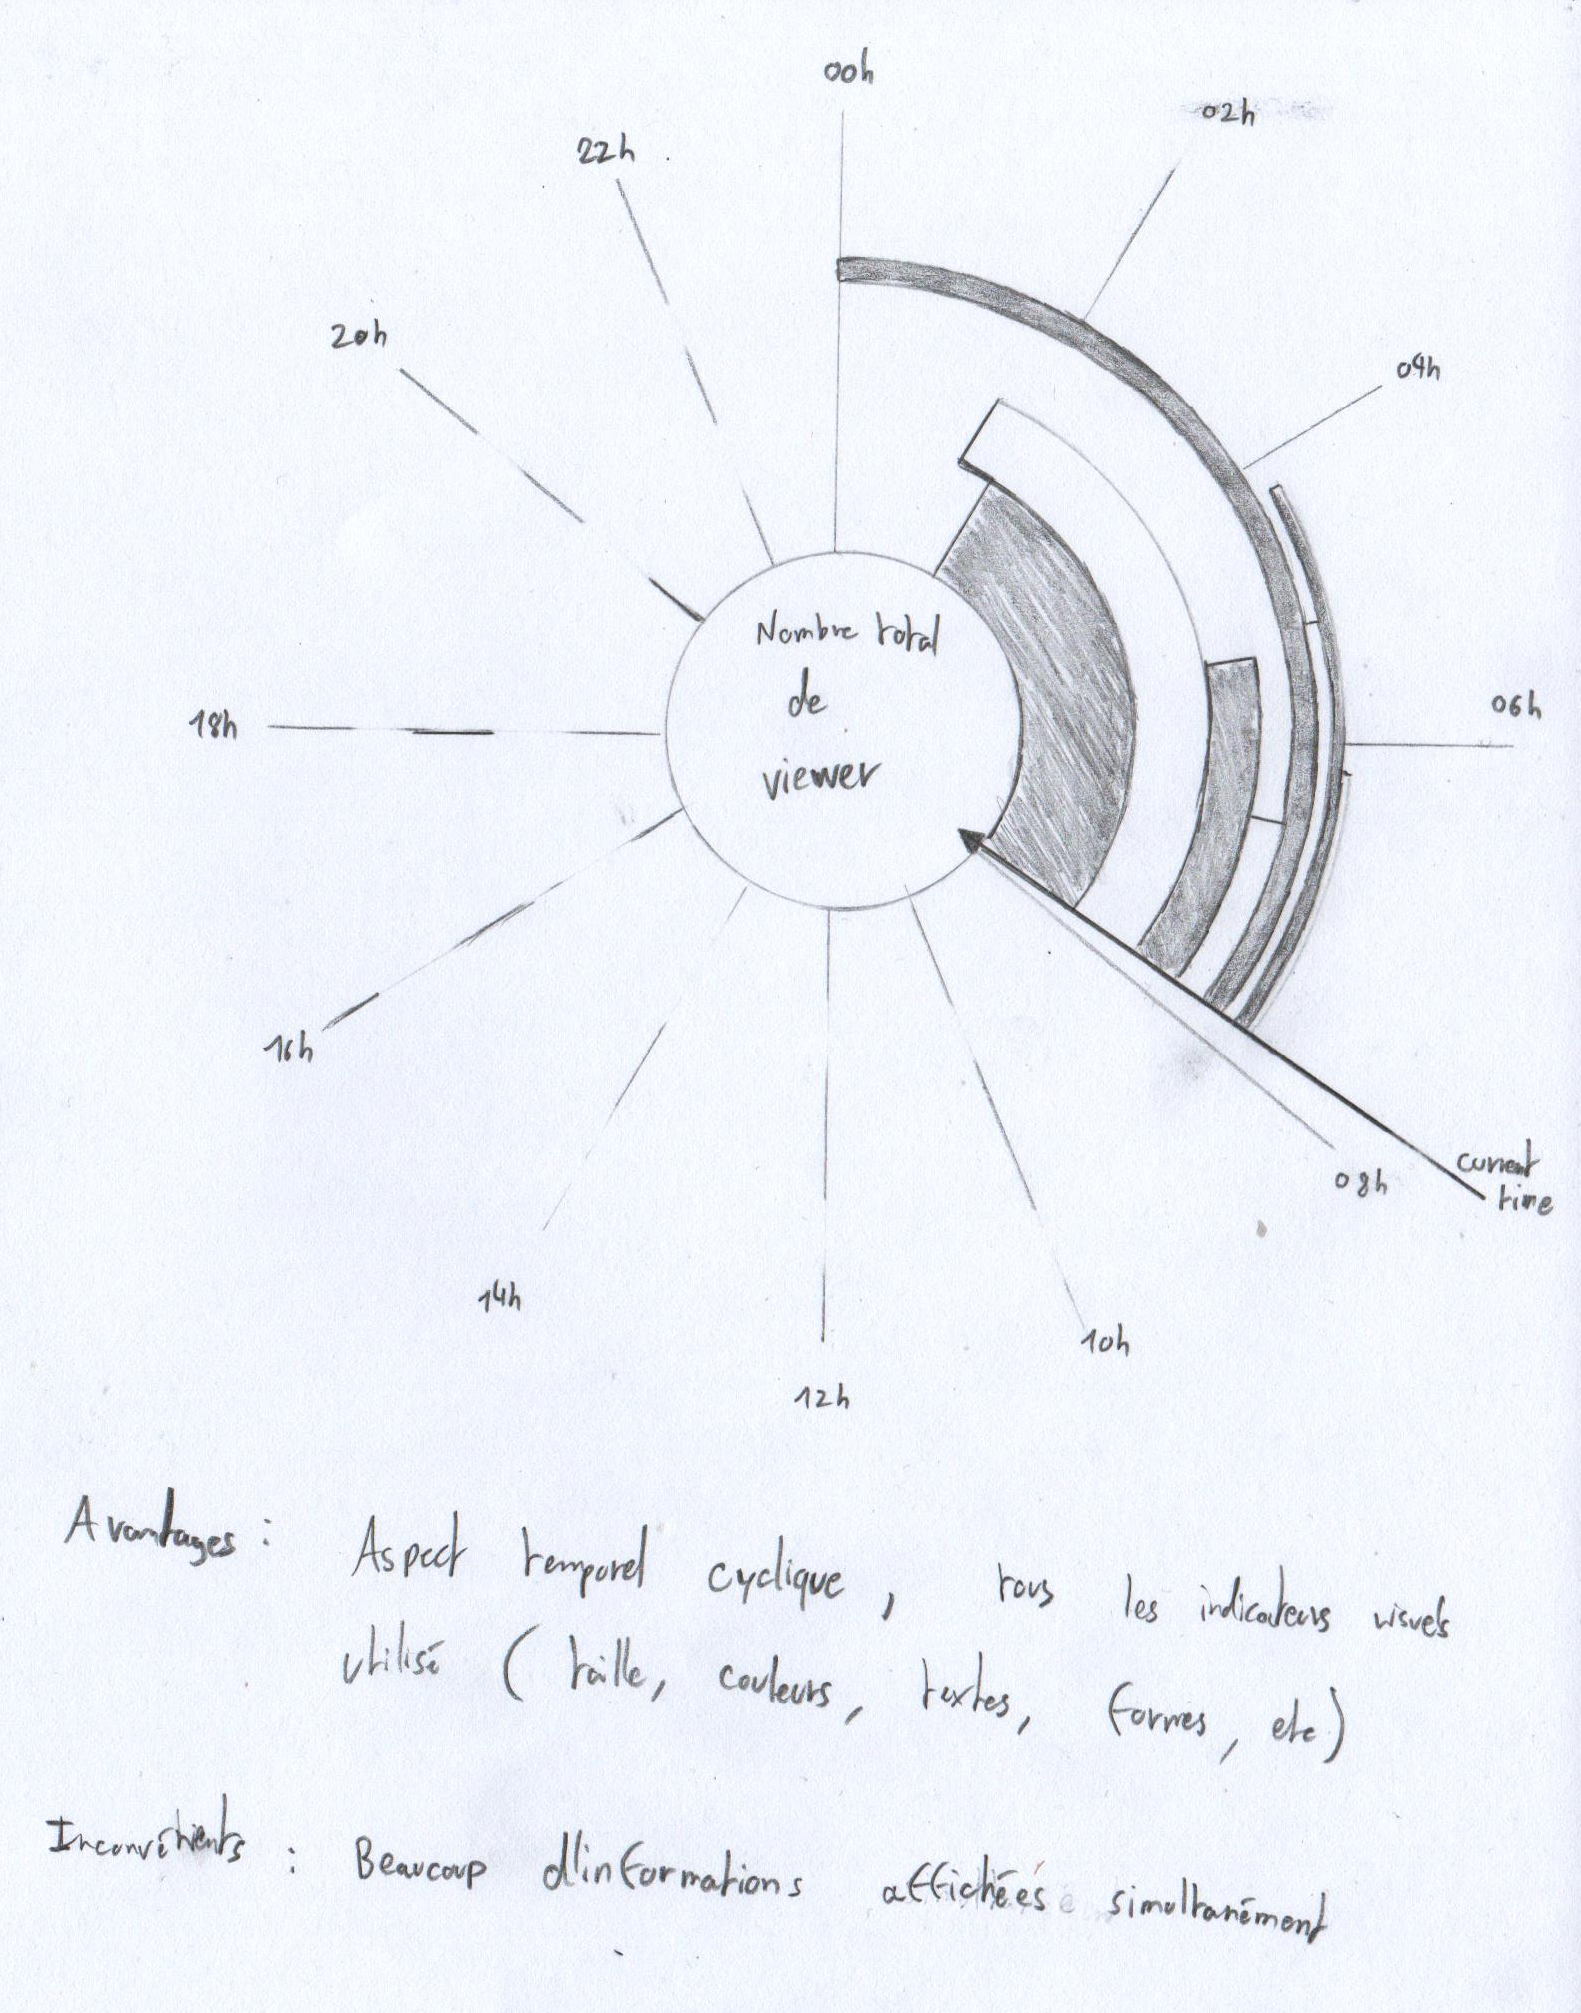 00h
02h
22h
20h
04h
Nombre total
de
viewer
06h
18h
16h
current
time
08h
14h
10h
12h
Avantages : Aspect temporel cyclique, tous les indicateurs visuels
utilisé (taille, couleurs, textes, formes, etc)
Inconvénients : Beaucoup d'informations affichées simultanément